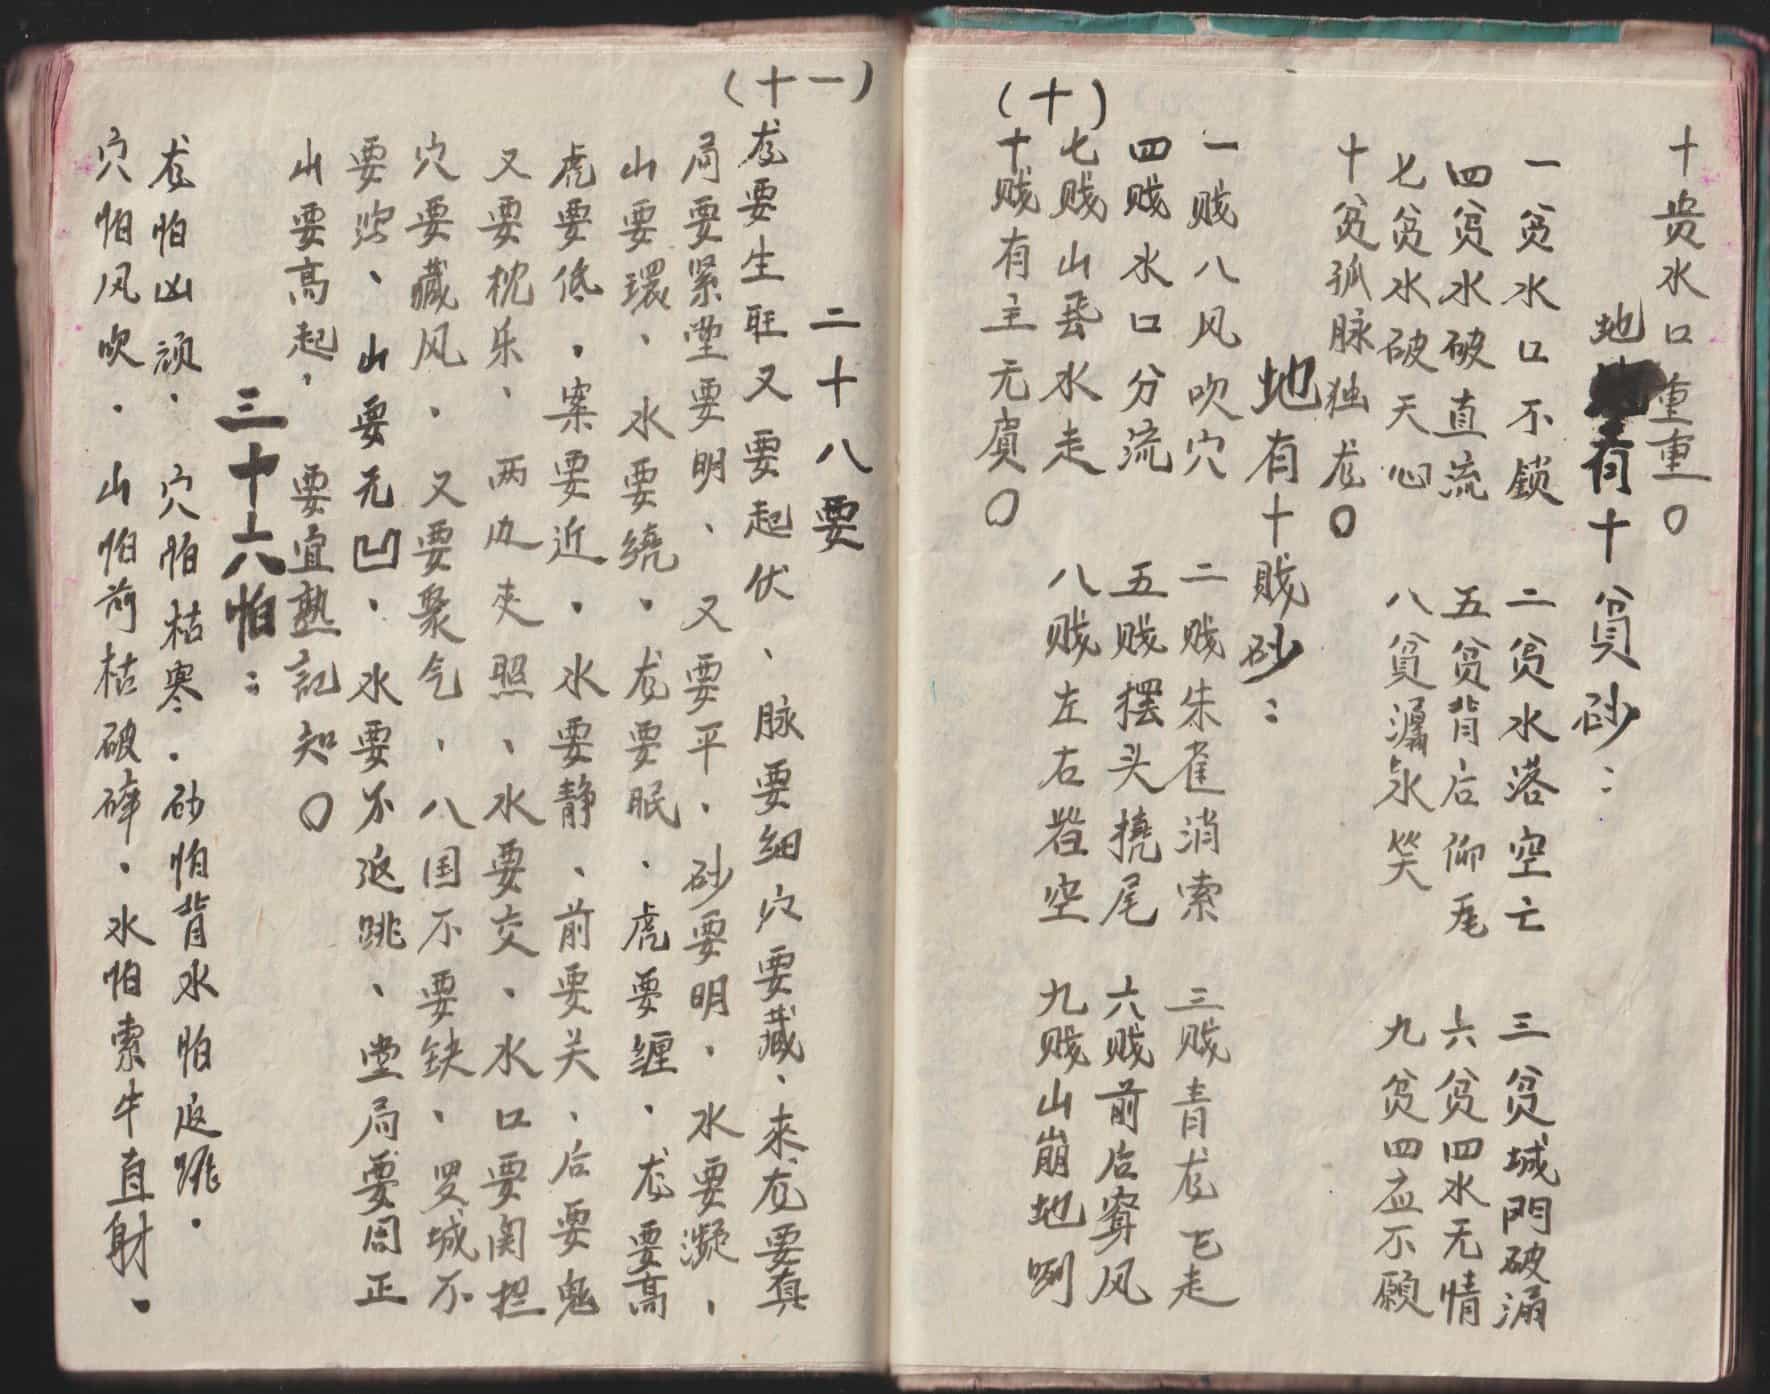 十贵水口重重〇
地有十貧砂：
一贫水口不鎖 二贫水落空亡 三贫城門破漏
四贫水破直流 五贫背后仰𡱈 六贫四水无情
七贫水破天心 八貧㵸氷笑 九贫四应不顧
十贫孤脉独龙〇
地有十贱砂：
一贱八风吹穴 二贱朱雀消索 三贱青龙飞走
四贱水口分流 五贱摆头撓尾 六贱前后穿风
七贱山飛水走 八贱左右空 九贱山崩地咧
十贱有主无賓〇
（十）
（十一）
二十八要
龙要生旺又要起伏、脉要细穴要藏、来龙要真
局要紧堂要明、又要平、砂要明、水要凝、
山要環、水要繞、龙要眠、虎要缠、龙要高
虎要低、案要近、水要静、前要关、后要鬼
又要枕乐、两边夹照、水要交、水口要関拦
穴要藏风、又要聚气、八国不要缺、罗城不
要泻、山要无凹、水要不返跳、堂局要周正
山要高起、要宜熟記知〇
三十六怕：
龙怕凶顽、穴怕枯寒、砂怕背水怕返跳、
穴怕风吹、山怕前枯破碎、水怕索牛直射、